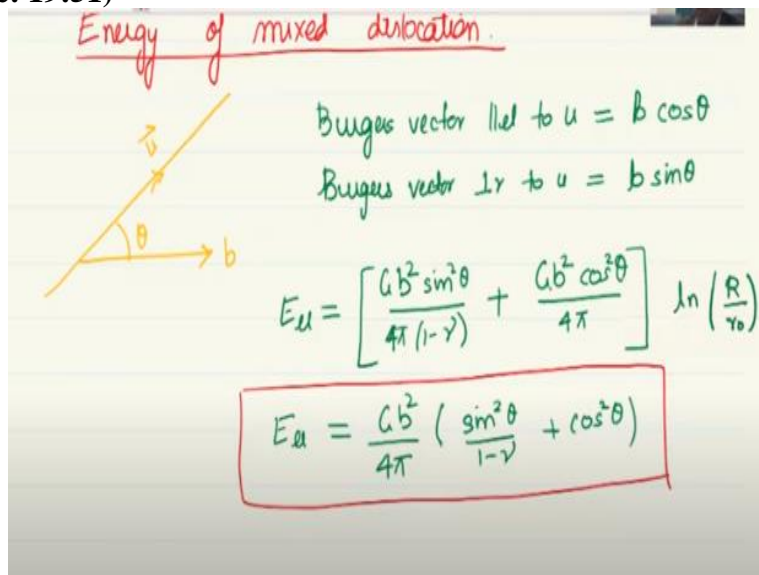 c. 19:51)
Energy of mixed dislocation.
Burgers vector llel to u = b cosθ
Burgers vector ⊥r to u = b sinθ
u
θ
b
E_el = [ Gb² sin²θ / 4π (1-ν) + Gb² cos²θ / 4π ] ln (R / r₀)
E_el = Gb² / 4π ( sin²θ / 1-ν + cos²θ )